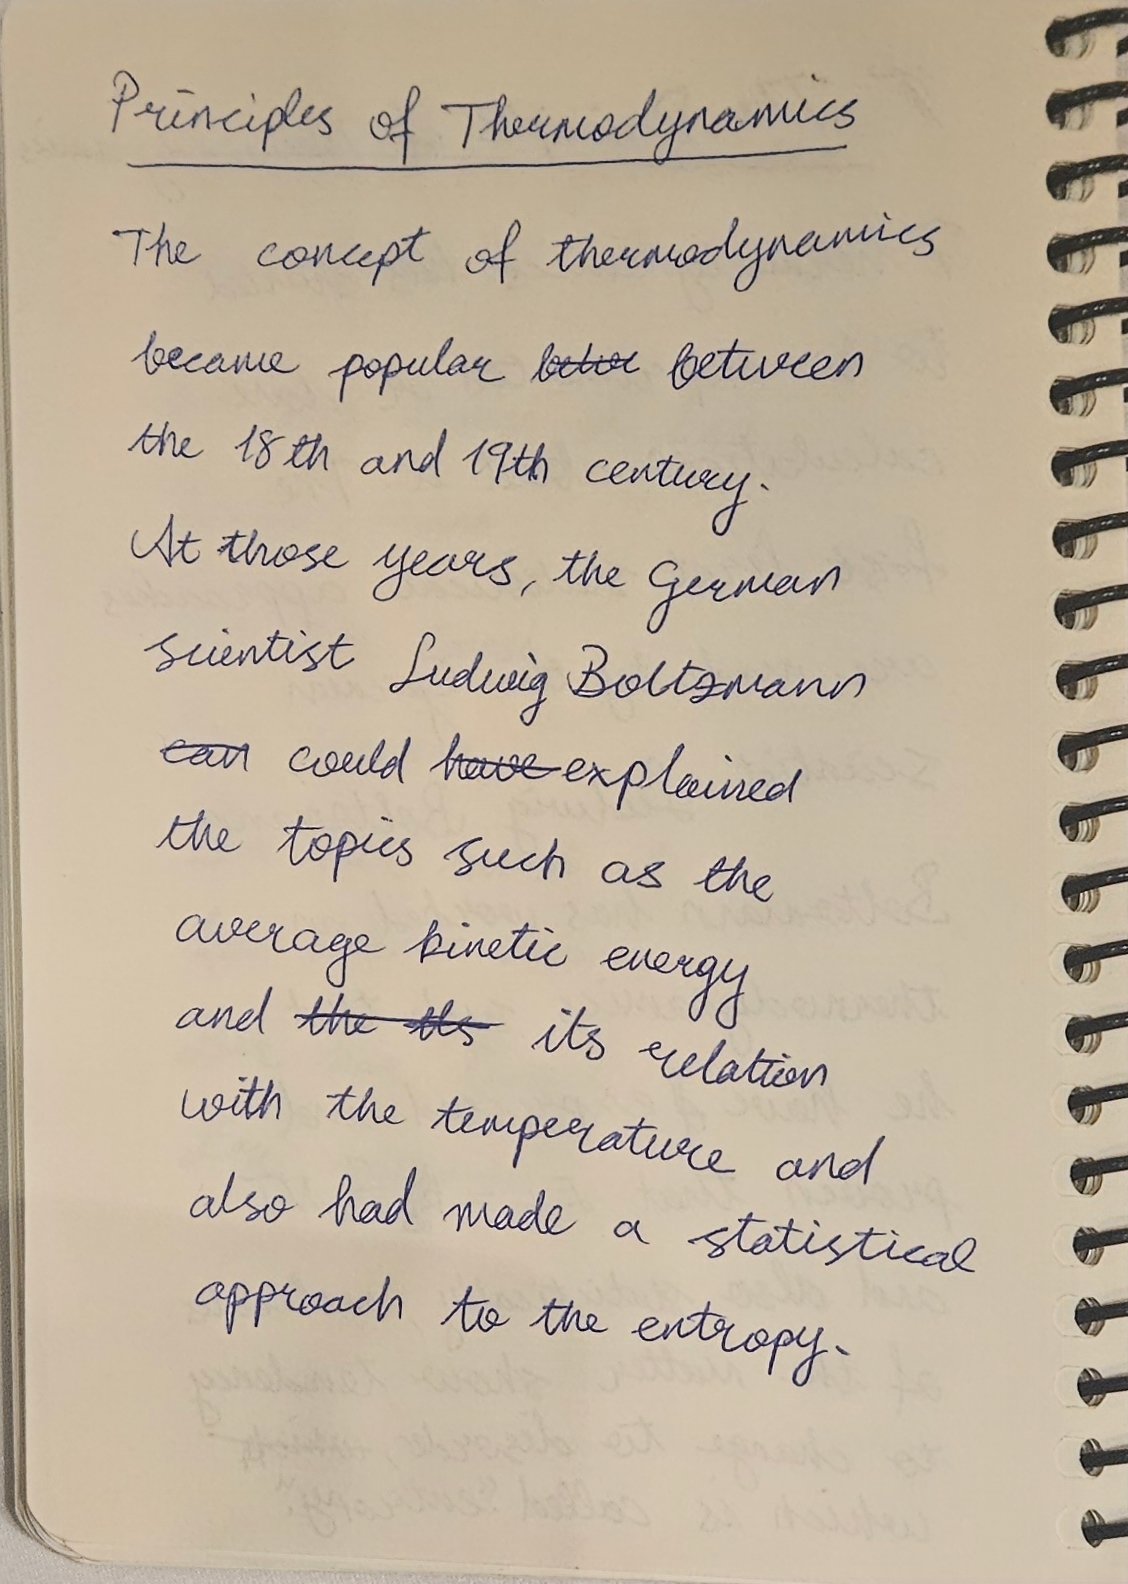 Principles of Thermodynamics
The concept of thermodynamics
became popular between
the 18th and 19th century.
At those years, the German
scientist Ludwig Boltzmann
can could have explained
the topics such as the
average kinetic energy
and the its relation
with the temperature and
also had made a statistical
approach to the entropy.